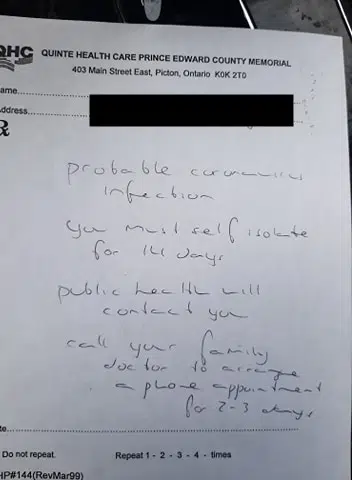 QHC QUINTE HEALTH CARE PRINCE EDWARD COUNTY MEMORIAL
403 Main Street East, Picton, Ontario K0K 2T0
ame
Address
℞
probable coronavirus
infection
you must self isolate
for 14 days
public health will
contact you
call your family
doctor to arrange
a phone appointment
for 2-3 days
te
Do not repeat. Repeat 1 - 2 - 3 - 4 - times
HP#144(RevMar99)